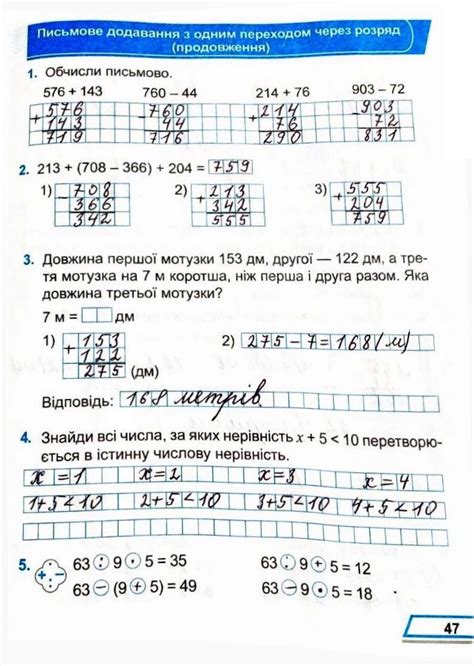 Письмове додавання з одним переходом через розряд
(продовження)
1. Обчисли письмово.
576 + 143 760 – 44 214 + 76 903 – 72
+ 576 - 760 + 214 - 903
143 44 76 72
719 716 290 831
2. 213 + (708 – 366) + 204 = 759
1) - 708 2) + 213 3) + 555
366 342 204
342 555 759
3. Довжина першої мотузки 153 дм, другої — 122 дм, а тре-
тя мотузка на 7 м коротша, ніж перша і друга разом. Яка
довжина третьої мотузки?
7 м = дм
1) + 153 2) 275 – 7 = 168 (м)
122
275 (дм)
Відповідь: 168 метрів.
4. Знайди всі числа, за яких нерівність x + 5 < 10 перетворю-
ється в істинну числову нерівність.
x = 1 x = 2 x = 3 x = 4
1+5<10 2+5<10 3+5<10 4+5<10
5. 63 : 9 · 5 = 35 63 : 9 + 5 = 12
+ · : - 63 – (9 + 5) = 49 63 – 9 · 5 = 18
47